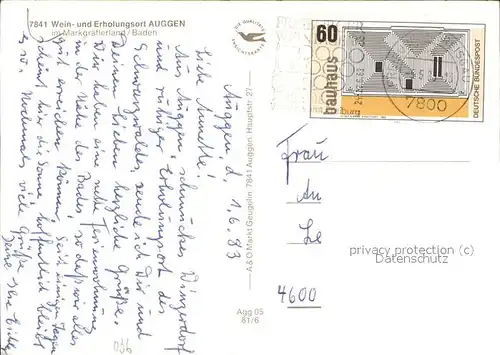 7841 Wein- und Erholungsort AUGGEN
im Markgräflerland / Baden
Auggen, d. 1.6.83
Liebe Annette!
Aus Auggen, schmuckes Winzerdorf
und ruhiger Erholungsort des
Schwarzwaldes, sende ich Dir und
Deinen Lieben herzliche Grüße.
Wir haben eine nette Ferienwohnung
in der Nähe des Bades so daß wir alles
gut erreichen können. Seit einigen Tagen
scheint hier die Sonne, hoffentlich bleibt
es so. Nochmals viele Grüße
Deine
A & O Markt Geugelin 7841 Auggen, Hauptstr. 27
Agg 05
81/6
DIE QUALITÄTS
ANSICHTSKARTE
60
bauhaus
DEUTSCHE BUNDESPOST
7800
Frau
An
Le
4600
privacy protection (c)
Datenschutz